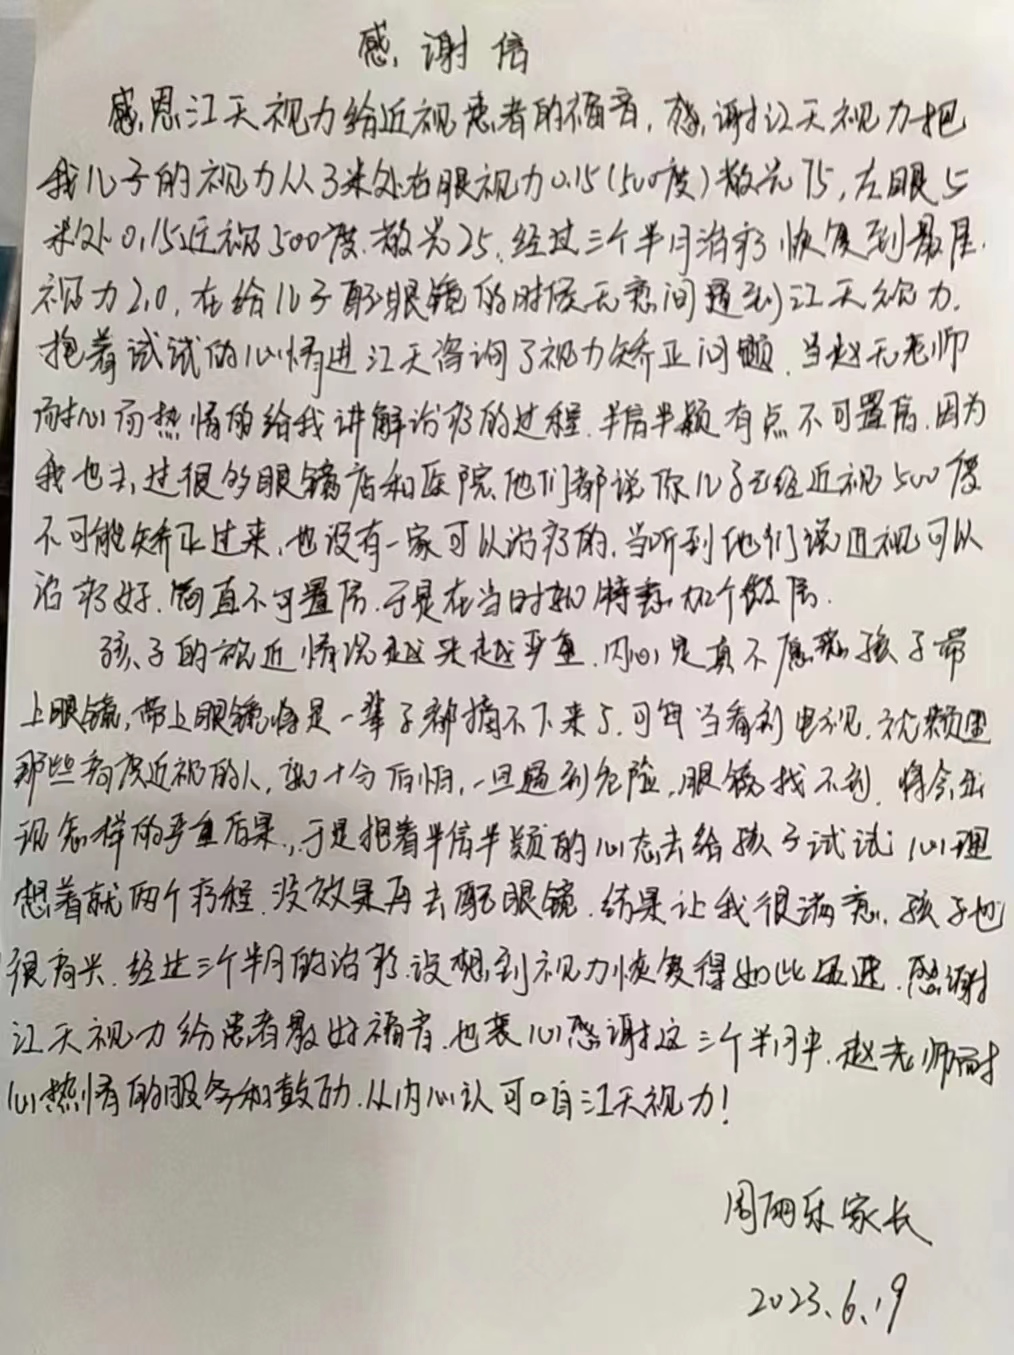 感谢信
感恩江天视力给近视患者的福音，感谢江天视力把
我儿子的视力从3米处右眼视力0.15(500度)散光75，左眼5
米处0.15近视500度，散光25，经过三个半月治疗恢复到最佳
视力2.0，在给儿子配眼镜的时候无意间遇到江天视力，
抱着试试的心情进江天咨询了视力矫正问题，当赵无老师
耐心而热情的给我讲解治疗的过程，半信半颖有点不可置信，因为
我也去过很多眼镜店和医院，他们都说你儿子已经近视500度
不可能矫正过来，也没有一家可以治疗的，当听到他们说近视可以
治疗好，简直不可置信，于是在当时就特意加个微信。
孩子的视近情况越来越严重，内心是真不愿意孩子带
上眼镜，带上眼镜将是一辈子都摘不下来了，可每当看到电视，视频里
那些高度近视的人，就十分后怕，一旦遇到危险，眼镜找不到，将会出
现怎样的严重后果，于是抱着半信半颖的心态去给孩子试试，心理
想着就两个疗程，没效果再去配眼镜，结果让我很满意，孩子也
很高兴，经过三个半月的治疗，没想到视力恢复得如此迅速，感谢
江天视力给患者最好福音，也衷心感谢这三个半月中，赵老师耐
心热情的服务和鼓励，从内心认可咱江天视力！
周丽乐家长
2023.6.19